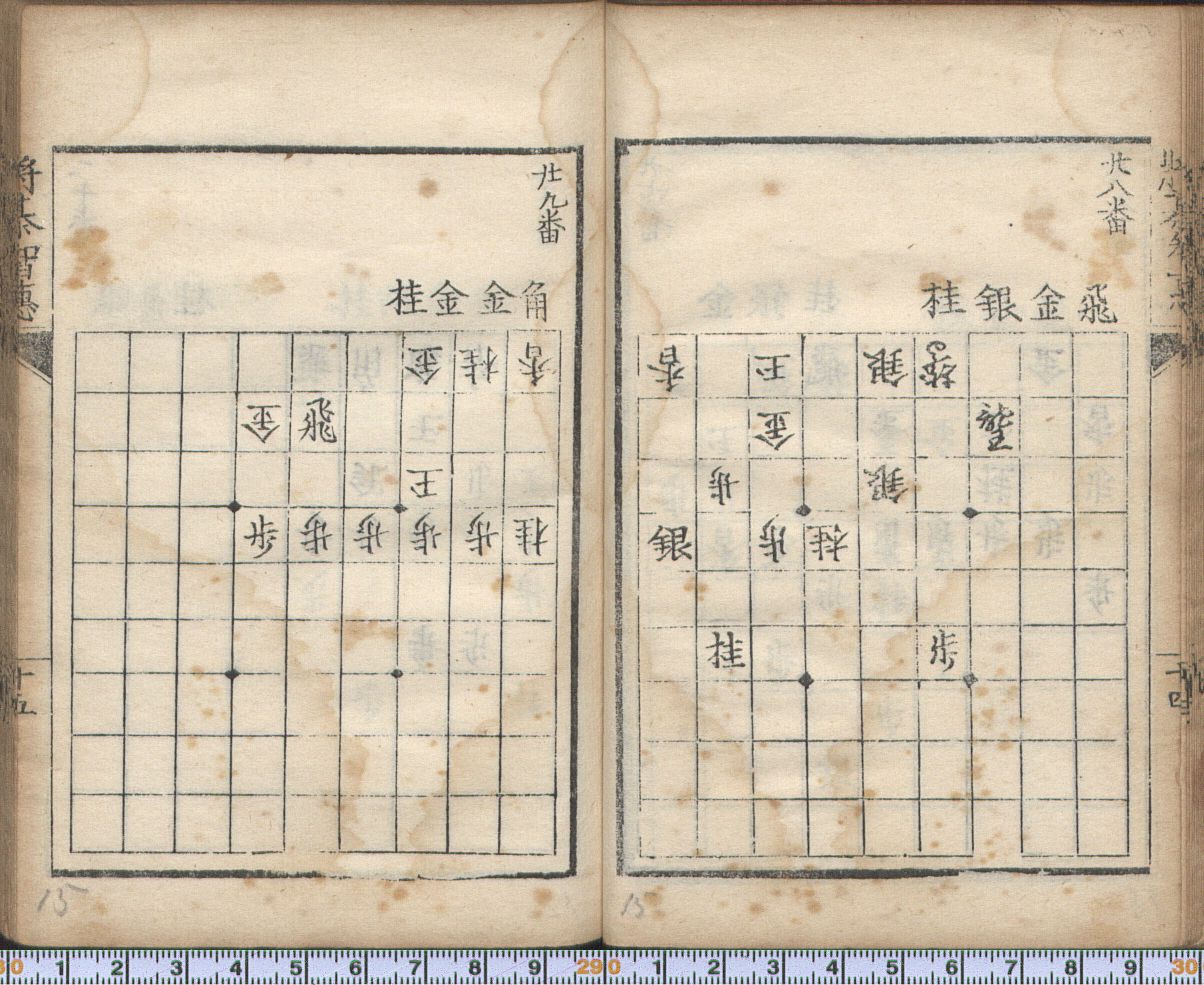 廿八番
飛金銀桂
香 王 銀
金
歩 銀
銀 歩 桂
桂 歩
十四
15
廿九番
角金金桂
金 桂 香
金 飛
王
歩 歩 歩 歩 歩 桂
十五
15
30 1 2 3 4 5 6 7 8 9 29 0 1 2 3 4 5 6 7 8 9 30